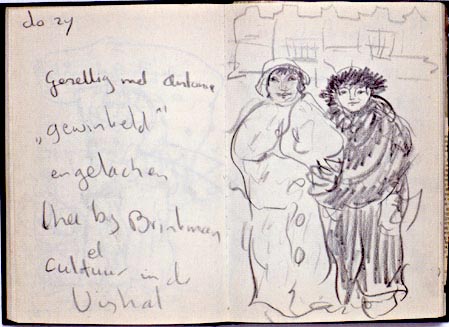 do 24
Gezellig met
„gewinkeld”
en gelachen
thee by Brinkman
cultureel in de
Vishal